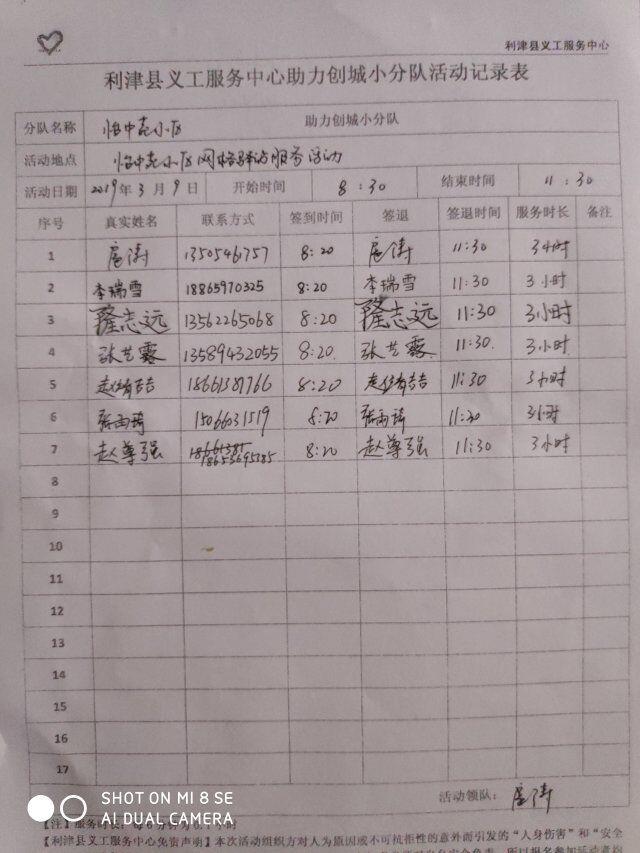 利津县义工服务中心
利津县义工服务中心助力创城小分队活动记录表
分队名称 怡中苑小区 助力创城小分队
活动地点 怡中苑小区网格驿站服务活动
活动日期 2019年3月9日 开始时间 8:30 结束时间 11:30
序号 真实姓名 联系方式 签到时间 签退 签退时间 服务时长 备注
1 扈涛 8:20 扈涛 11:30 3小时
2 李瑞雪 18865970325 8:20 李瑞雪 11:30 3小时
3 隆志远 13562265068 8:20 隆志远 11:30 3小时
4 张艺霖 13589432055 8:20. 张艺霖 11:30. 3小时
5 18661381766 8:20 11:30 3小时
6 张雨琦 15066031519 8:20 张雨琦 11:30 3小时
7 赵尊强 18653695785 8:20 赵尊强 11:30 3小时
8
9
10
11
12
13
14
15
16
17
活动领队: 扈涛
SHOT ON MI 8 SE
AI DUAL CAMERA
【注】服务时长:每6分钟为0.1小时
【利津县义工服务中心免责声明】本次活动组织方对人为原因或不可抗拒性的意外而引发的“人身伤害”和“安全